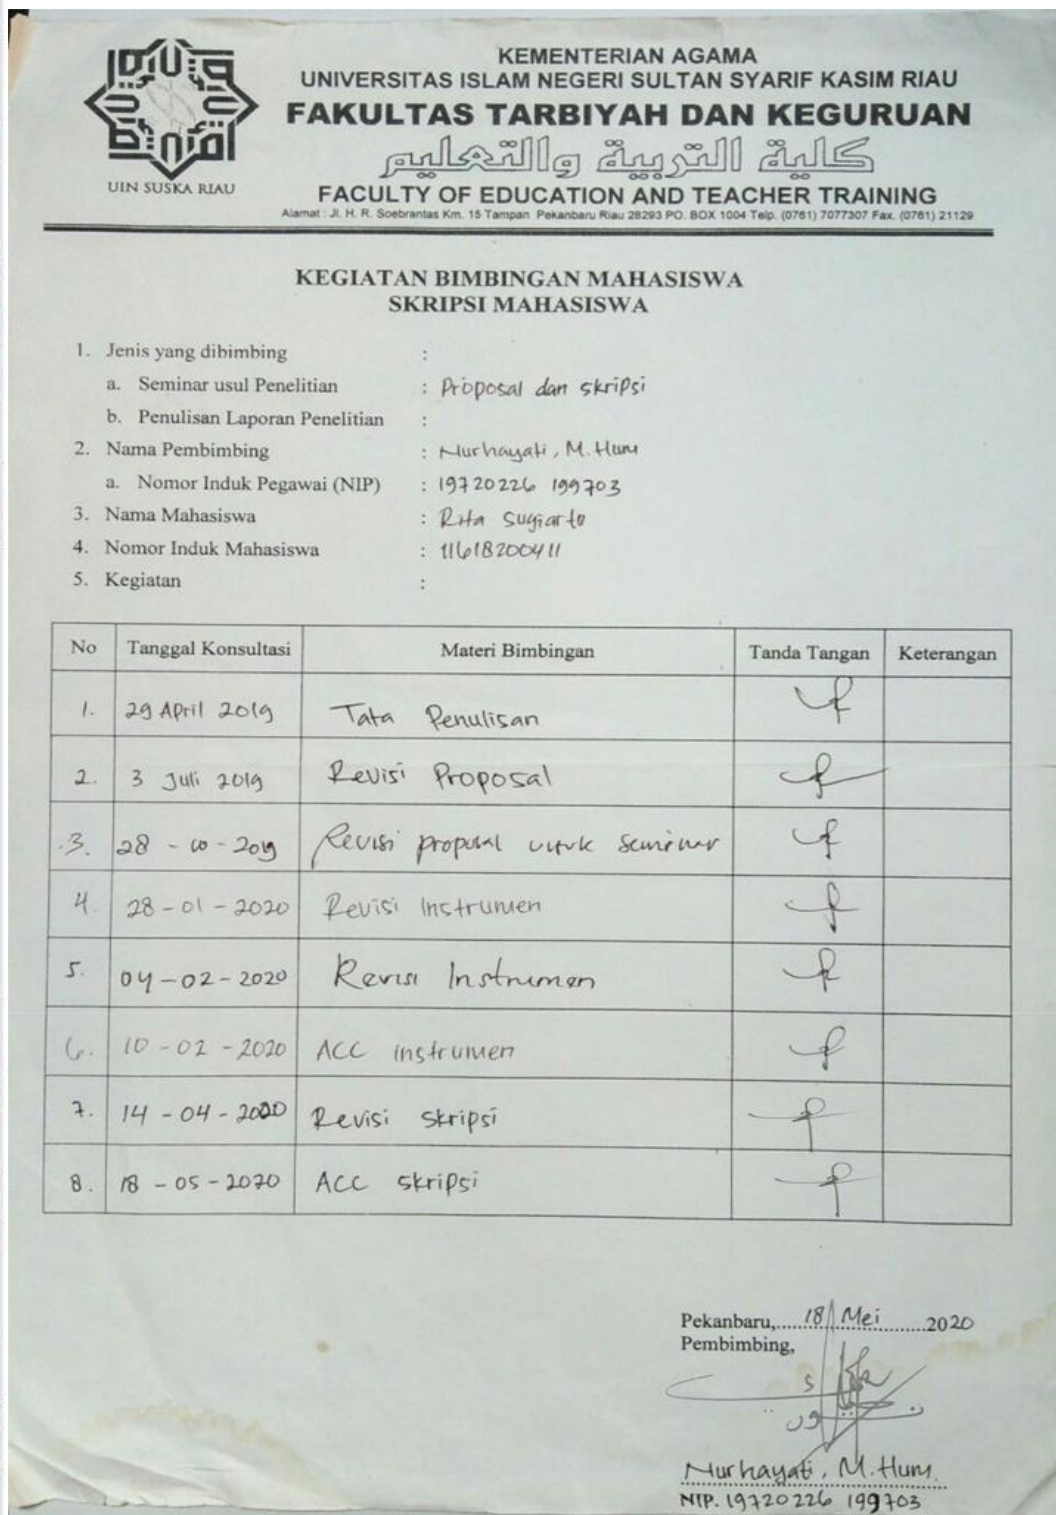 UIN SUSKA RIAU
KEMENTERIAN AGAMA
UNIVERSITAS ISLAM NEGERI SULTAN SYARIF KASIM RIAU
FAKULTAS TARBIYAH DAN KEGURUAN
كلية التربية والتعليم
FACULTY OF EDUCATION AND TEACHER TRAINING
Alamat : Jl. H. R. Soebrantas Km. 15 Tampan Pekanbaru Riau 28293 PO. BOX 1004 Telp. (0761) 7077307 Fax. (0761) 21129
KEGIATAN BIMBINGAN MAHASISWA
SKRIPSI MAHASISWA
1. Jenis yang dibimbing :
a. Seminar usul Penelitian : Proposal dan skripsi
b. Penulisan Laporan Penelitian :
2. Nama Pembimbing : Nurhayati, M. Hum
a. Nomor Induk Pegawai (NIP) : 19720226 199703
3. Nama Mahasiswa : Rita Sugiarto
4. Nomor Induk Mahasiswa : 11618200411
5. Kegiatan :
No Tanggal Konsultasi Materi Bimbingan Tanda Tangan Keterangan
1. 29 April 2019 Tata Penulisan
2. 3 Juli 2019 Revisi Proposal
3. 28 - 10 - 2019 Revisi proposal untuk seminar
4. 28 - 01 - 2020 Revisi Instrumen
5. 04 - 02 - 2020 Revisi Instrumen
6. 10 - 02 - 2020 ACC instrumen
7. 14 - 04 - 2020 Revisi skripsi
8. 18 - 05 - 2020 ACC skripsi
Pekanbaru,.....18 Mei.......2020
Pembimbing,
Nurhayati, M. Hum.
NIP. 19720226 199703